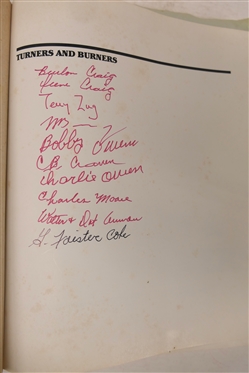 TURNERS AND BURNERS
Burlon Craig
Irene Craig
Terry Zug
Bobby Owens
C.B. Craven
Charlie Owen
Charles Moore
Walter & Dot Auman
Y. Foister Cole